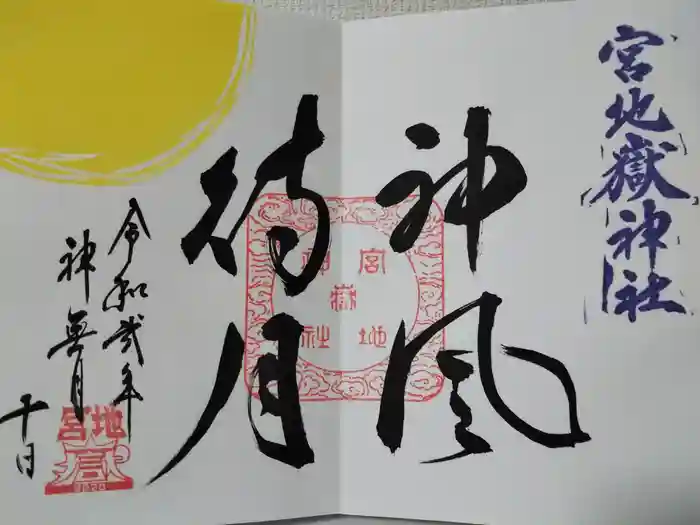 宮地嶽神社
神風
待月
令和弐年
神無月
十日
宮地嶽神社
宮地
2020